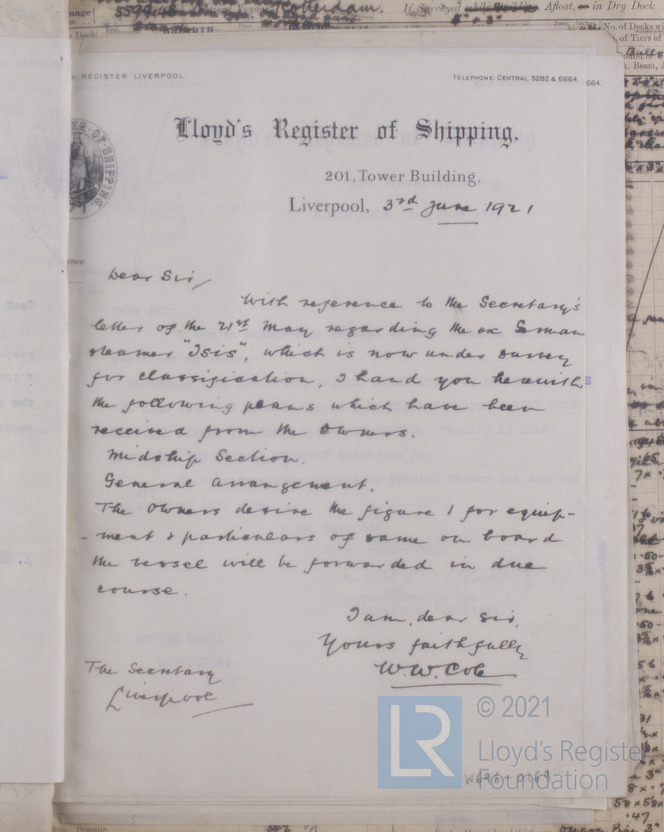 REGISTER LIVERPOOL
TELEPHONE: CENTRAL 5282 & 6664.
Lloyd's Register of Shipping,
201, Tower Building,
Liverpool, 3rd June 1921
Dear Sir,
With reference to the Secretary's
letter of the 21st May regarding the ex German
steamer "Isis", which is now under survey
for classification, I hand you herewith
the following plans which have been
received from the Owners.
Midship Section.
General Arrangement.
The Owners desire the figure 1 for equip-
-ment & particulars of same on board
the vessel will be forwarded in due
course.
I am, dear Sir,
Yours faithfully
W. W. Cole
The Secretary
Liverpool
LR
© 2021
Lloyd's Register
Foundation